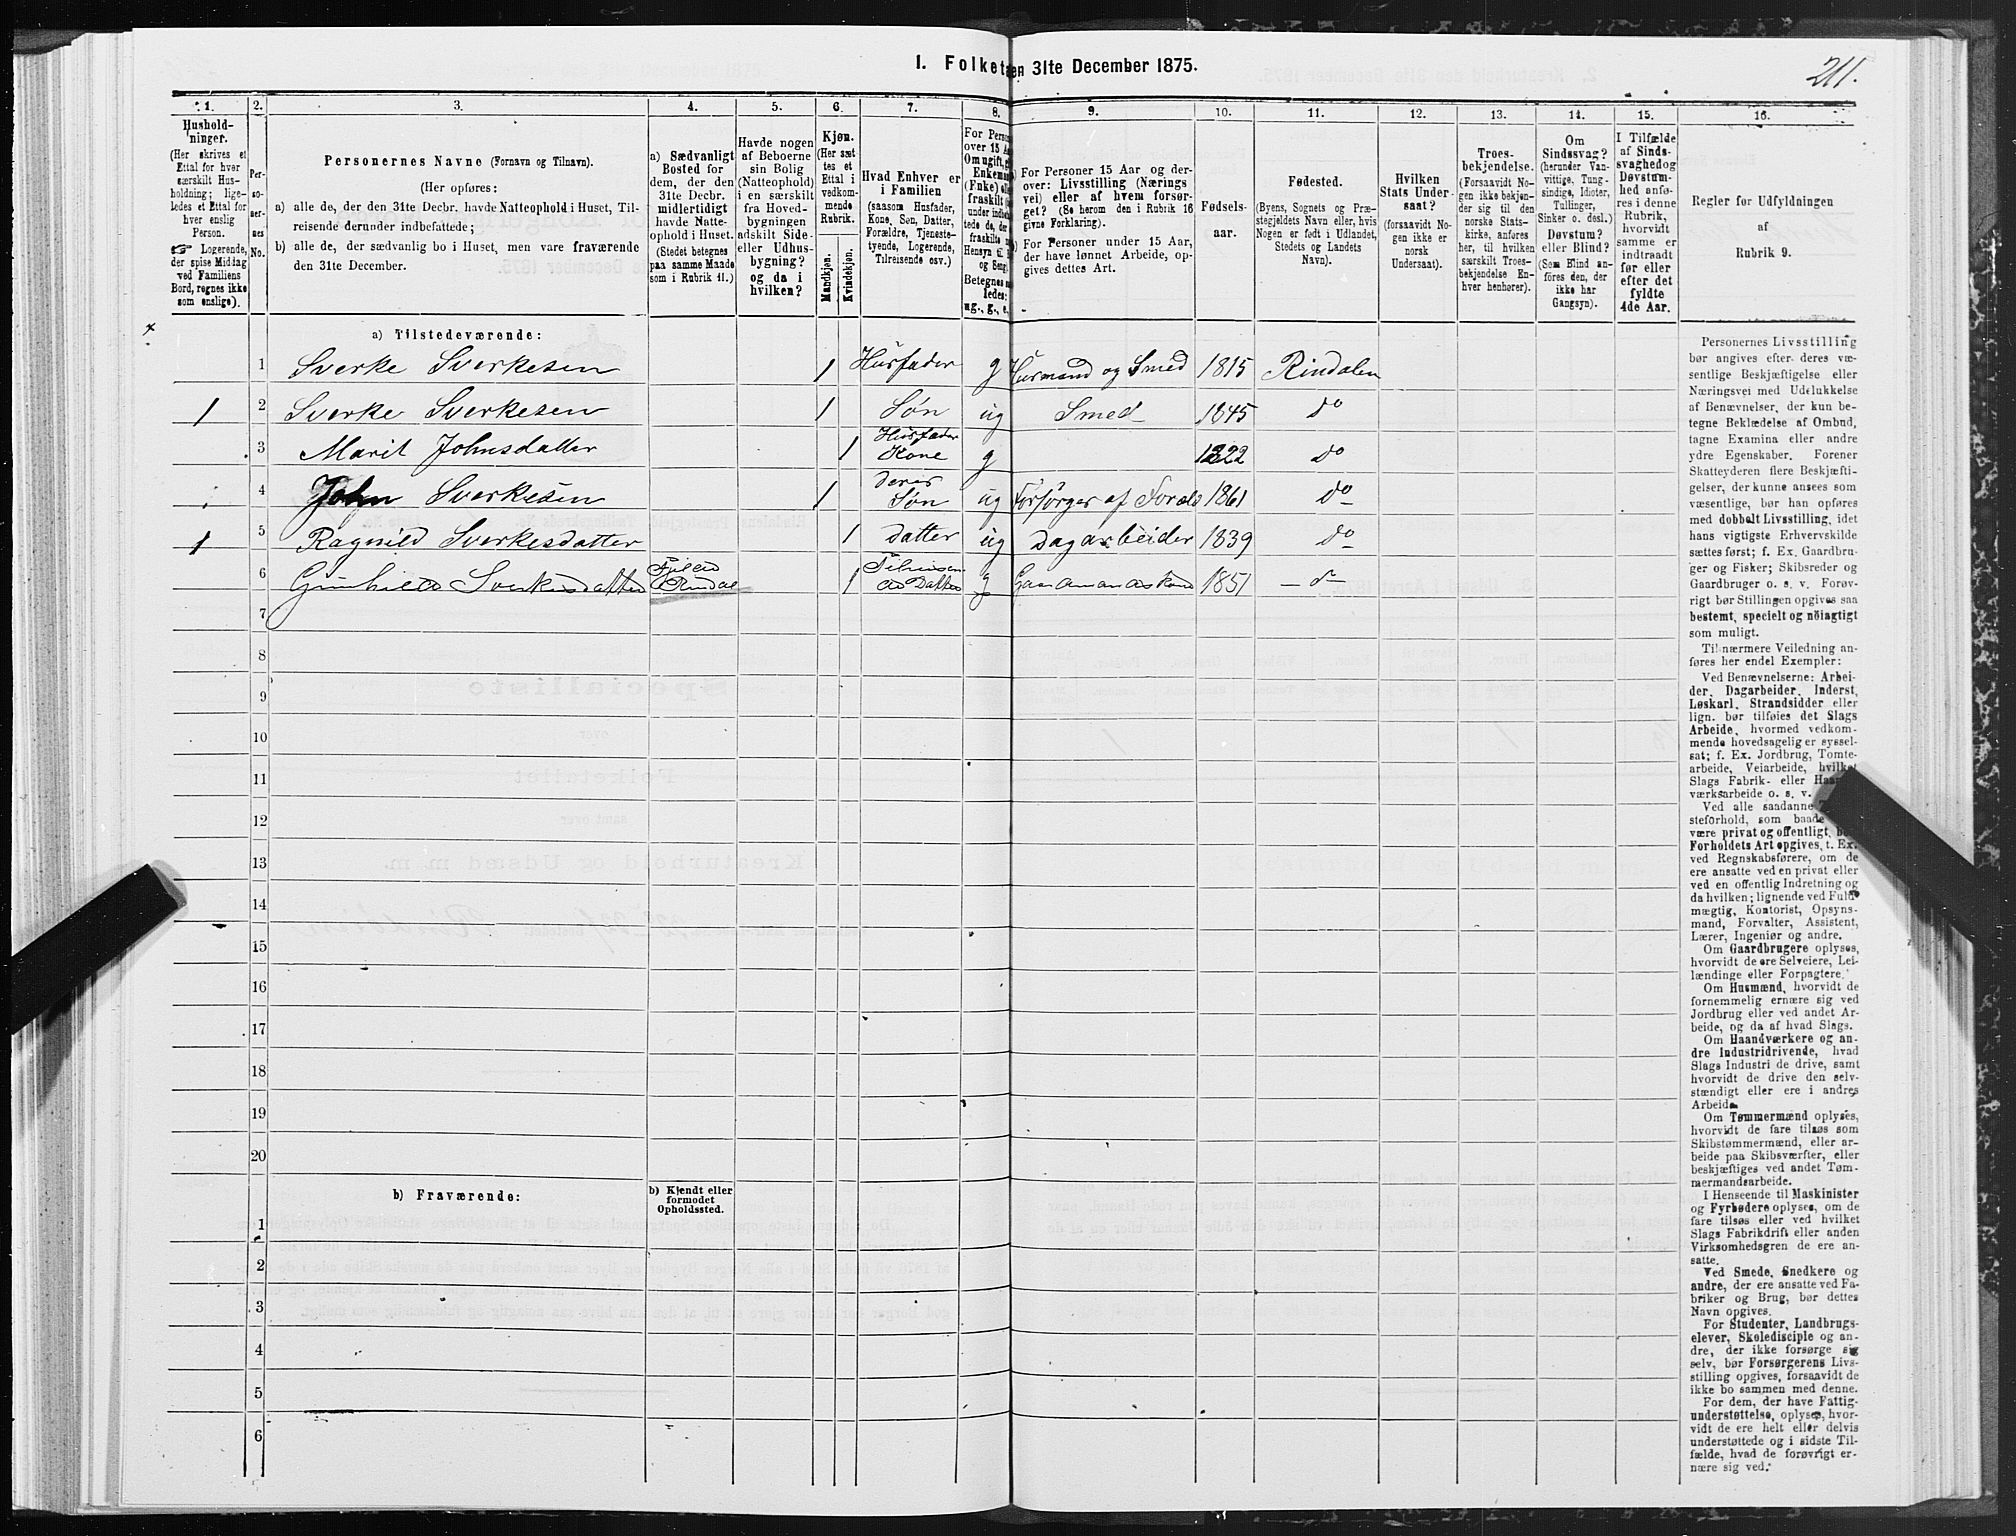 I. Folketæ en 31te December 1875.
211.
1. 2. 3. 4. 5. 6. 7. 8. 9. 10. 11. 12. 13. 14. 15. 16.
Hushold-
ninger.
(Her skrives et
Ettal for hver
særskilt Hus-
holdning; lige-
ledes et Ettal for
hver enslig
Person.
☞ Logerende,
der spise Middag
ved Familiens
Bord, regnes ikke
som enslige).
Per-
so-
ner-
nes
No.
Personernes Navne (Fornavn og Tilnavn).
(Her opføres:
a) alle de, der den 31te Decbr. havde Natteophold i Huset, Til-
reisende derunder indbefattede;
b) alle de, der sædvanlig bo i Huset, men vare fraværende
den 31te December.
a) Sædvanligt
Bosted for
dem, der den
31te Decbr.
midlertidigt
havde Natte-
ophold i Huset.
(Stedet betegnes
paa samme Maade
som i Rubrik 11.)
Havde nogen
af Beboerne
sin Bolig
(Natteophold)
i en særskilt
fra Hoved-
bygningen
adskilt Side-
eller Udhus-
bygning?
og da i
hvilken?
Kjøn.
(Her sæt
tes et
Ettal i
vedkom-
mende
Rubrik.
Mandkjøn.
Kvindekjøn.
Hvad Enhver er
i Familien
(saasom Husfader,
Kone, Søn, Datter,
Forældre, Tjeneste-
tyende, Logerende,
Tilreisende osv.)
For Perso
over 15 A
Om ugift, g
Enkeman
(Enke) el
fraskilt
under indbe
tede de, der
fraskilte
Hensyn til B
og Seng.
Betegnes s
ledes:
ug., g., e.
For Personer 15 Aar og der-
over: Livsstilling (Nærings
vei) eller af hvem forsør-
get? (Se herom den i Rubrik 16
givne Forklaring).
For Personer under 15 Aar,
der have lønnet Arbeide, op-
gives dettes Art.
Fødsels-
aar.
Fødested.
(Byens, Sognets og Præ-
stegjeldets Navn eller, hvis
Nogen er født i Udlandet,
Stedets og Landets
Navn).
Hvilken
Stats Under-
saat?
(forsaavidt No-
gen ikke er
norsk
Undersaat).
Troes-
bekjendelse.
(Forsaavidt No-
gen ikke bekjen-
der sig til den
norske Stats-
kirke, anføres
her, til hvilken
særskilt Troes-
bekjendelse En-
hver henhører).
Om
Sindssvag?
(herunder Van-
vittige, Tung-
sindige, Idioter,
Tullinger,
Sinker o. desl.)
Døvstum?
eller Blind?
(Som Blind an-
føres den, der
ikke har
Gangsyn).
I Tilfælde
af Sinds-
svaghed og
Døvstum-
hed anfø-
res i denne
Rubrik,
hvorvidt
samme er
indtraadt
før eller
efter det
fyldte
4de Aar.
Regler før Udfyldningen
af
Rubrik 9.
a) Tilstedeværende:
1 Sverke Sverkesen 1 Husfader g Husmand og Smed 1815 Rindalen
1 2 Sverke Sverkesen 1 Søn ug Smed 1845 do
3 Marit Johnsdatter 1 Husfader Kone g 1822 do
4 John Sverkesen 1 deres Søn ug Forsörges af Foræld 1861 do
1 5 Ragnild Sverkesdatter 1 datter ug dagarbeider 1839 do
6 Gunhild Sverkesdatter Rindal 1 Tilreisen de Datter g Gaardmandskone 1851 — d —
7
8
9
10
11
12
13
14
15
16
17
18
19
20
b) Fraværende:
b) Kjendt eller
formodet
Opholdssted.
1
2
3
4
5
6
Personernes Livsstilling
bør angives efter deres væ-
sentlige Beskjæftigelse eller
Næringsvei med Udelukkelse
af Benævnelser, der kun be-
tegne Beklædelse af Ombud,
tagne Examina eller andre
ydre Egenskaber. Forener
Skatteyderen flere Beskjæfti-
gelser, der kunne ansees som
væsentlige, bør han opføres
med dobbelt Livsstilling, idet
hans vigtigste Erhvervskilde
sættes først; f. Ex. Gaardbru-
ger og Fisker; Skibsreder og
Gaardbruger o. s. v. Forøv-
rigt bør Stillingen opgives saa
bestemt, specielt og nöiagtigt
som muligt.
Til nærmere Veiledning an-
føres her endel Exempler:
Ved Benævnelserne: Arbei-
der, Dagarbeider, Inderst,
Løskarl, Strandsidder eller
lign. bør tilføies det Slags
Arbeide, hvormed vedkom-
mende hovedsagelig er syssel-
sat; f. Ex. Jordbrug, Tomte-
arbeide, Veiarbeide, hvilket
Slags Fabrik- eller Haand-
værksarbeide o. s. v.
Ved alle saadanne
steforhold, som baade
være privat og offentligt, bør
Forholdets Art opgives, t. Ex.
ved Regnskabsførere, om de
ere ansatte ved en privat eller
ved en offentlig Indretning og
da hvilken; lignende ved Fuld-
mægtig, Kontorist, Opsyns-
mand, Forvalter, Assistent,
Lærer, Ingeniør og andre.
Om Gaardbrugere oplyses,
hvorvidt de ere Selveiere, Lei-
lændinge eller Forpagtere.
Om Husmænd, hvorvidt de
fornemmelig ernære sig ved
Jordbrug eller ved andet Ar-
beide, og da af hvad Slags.
Om Haandværkere og an-
dre Industridrivende, hvad
Slags Industri de drive, samt
hvorvidt de drive den selv-
stændigt eller ere i andres
Arbeide.
Om Tømmermænd oplyses,
hvorvidt de fare tilsøs som
Skibstømmermænd, eller ar-
beide paa Skibsværfter, eller
beskjæftiges ved andet Tøm-
mermandsarbeide.
I Henseende til Maskinister
og Fyrbødere oplyses, om de
fare tilsøs eller ved hvilket
Slags Fabrikdrift eller anden
Virksomhedsgren de ere an-
satte.
Ved Smede, Snedkere og
andre, der ere ansatte ved Fa-
briker og Brug, bør dettes
Navn opgives.
For Studenter, Landbrugs-
elever, Skoledisciple og an-
dre, der ikke forsørge sig
selv, bør Forsørgerens Livs-
stilling opgives, forsaavidt de
ikke bo sammen med denne.
For dem, der have Fattig-
understøttelse, oplyses, hvor-
vidt de ere helt eller delvis
understøttede og i sidste Til-
fælde, hvad de forøvrigt er-
nære sig ved.